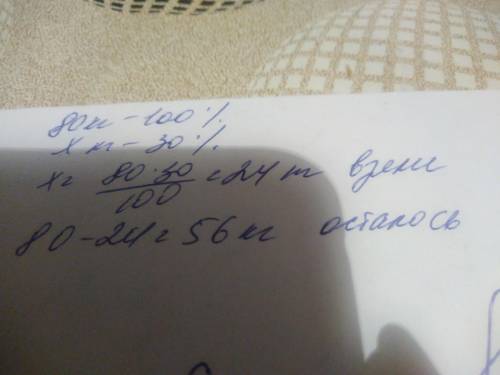 80 кг - 100 %
х кг - 30 %
х = 80·30 / 100 = 24 кг взяли
80 - 24 = 56 кг осталось